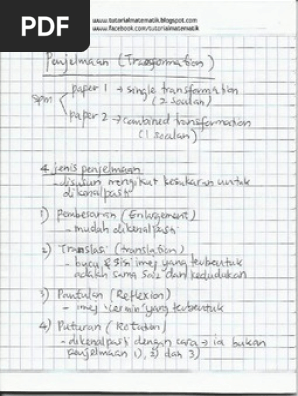 PDF
www.tutorialmatematik.blogspot.com
www.facebook.com/tutorialmatematik
Penjelmaan (Transformation)
SPM
paper 1 → single transformation
(2 soalan)
paper 2 → combined transformation
(1 soalan)
4 jenis penjelmaan
- disusun mengikut kesukaran untuk
dikenalpasti
1) Pembesaran (Enlargement)
- mudah dikenalpasti
2) Translasi (translation)
- bucu & sisi imej yang terbentuk
adalah sama saiz dan kedudukan
3) Pantulan (Reflexion)
- imej 'cermin' yang terbentuk
4) Putaran (Rotation)
- dikenalpasti dengan cara → ia bukan
penjelmaan 1), 2) dan 3)